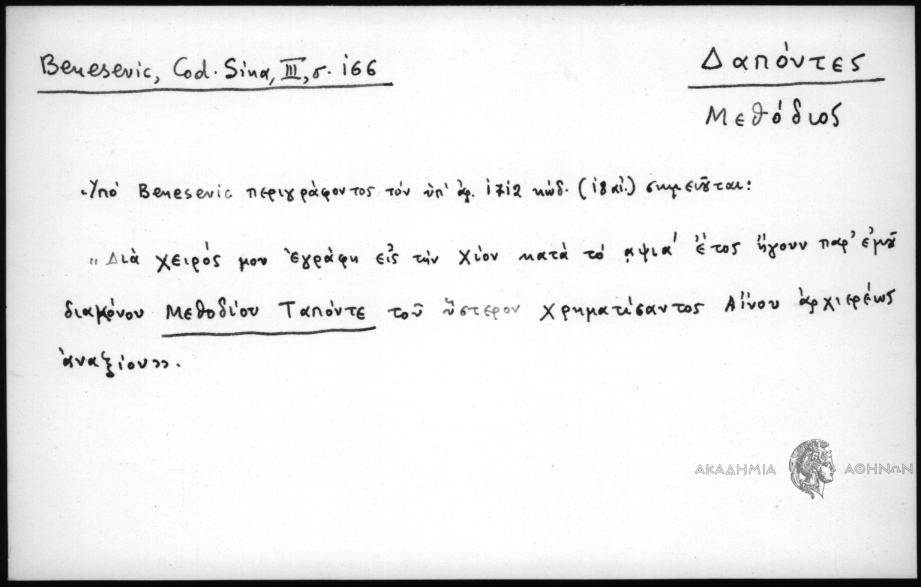 Benesevic, Cod. Sina, III, σ. 166
Δαπόντες
Μεθόδιος
Ὑπό Benesevic περιγράφοντος τόν ὑπ' ἀρ. 1712 κώδ. (18 αἰ.) σημειοῦται:
«Διὰ χειρός μου ἐγράφη εἰς τὴν Χίον κατὰ τὸ ͵αψια' ἔτος ἤγουν παρ' ἐμοῦ
διακόνου Μεθοδίου Ταπόντε τοῦ ὕστερον χρηματίσαντος Αἴνου ἀρχιερέως
ἀναξίου».
ΑΚΑΔΗΜΙΑ ΑΘΗΝΩΝ